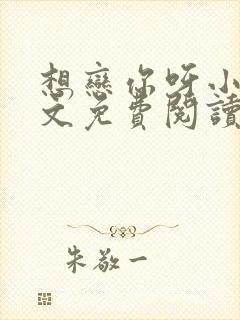 想戀你呀小
文免費閱讀
朱敬一